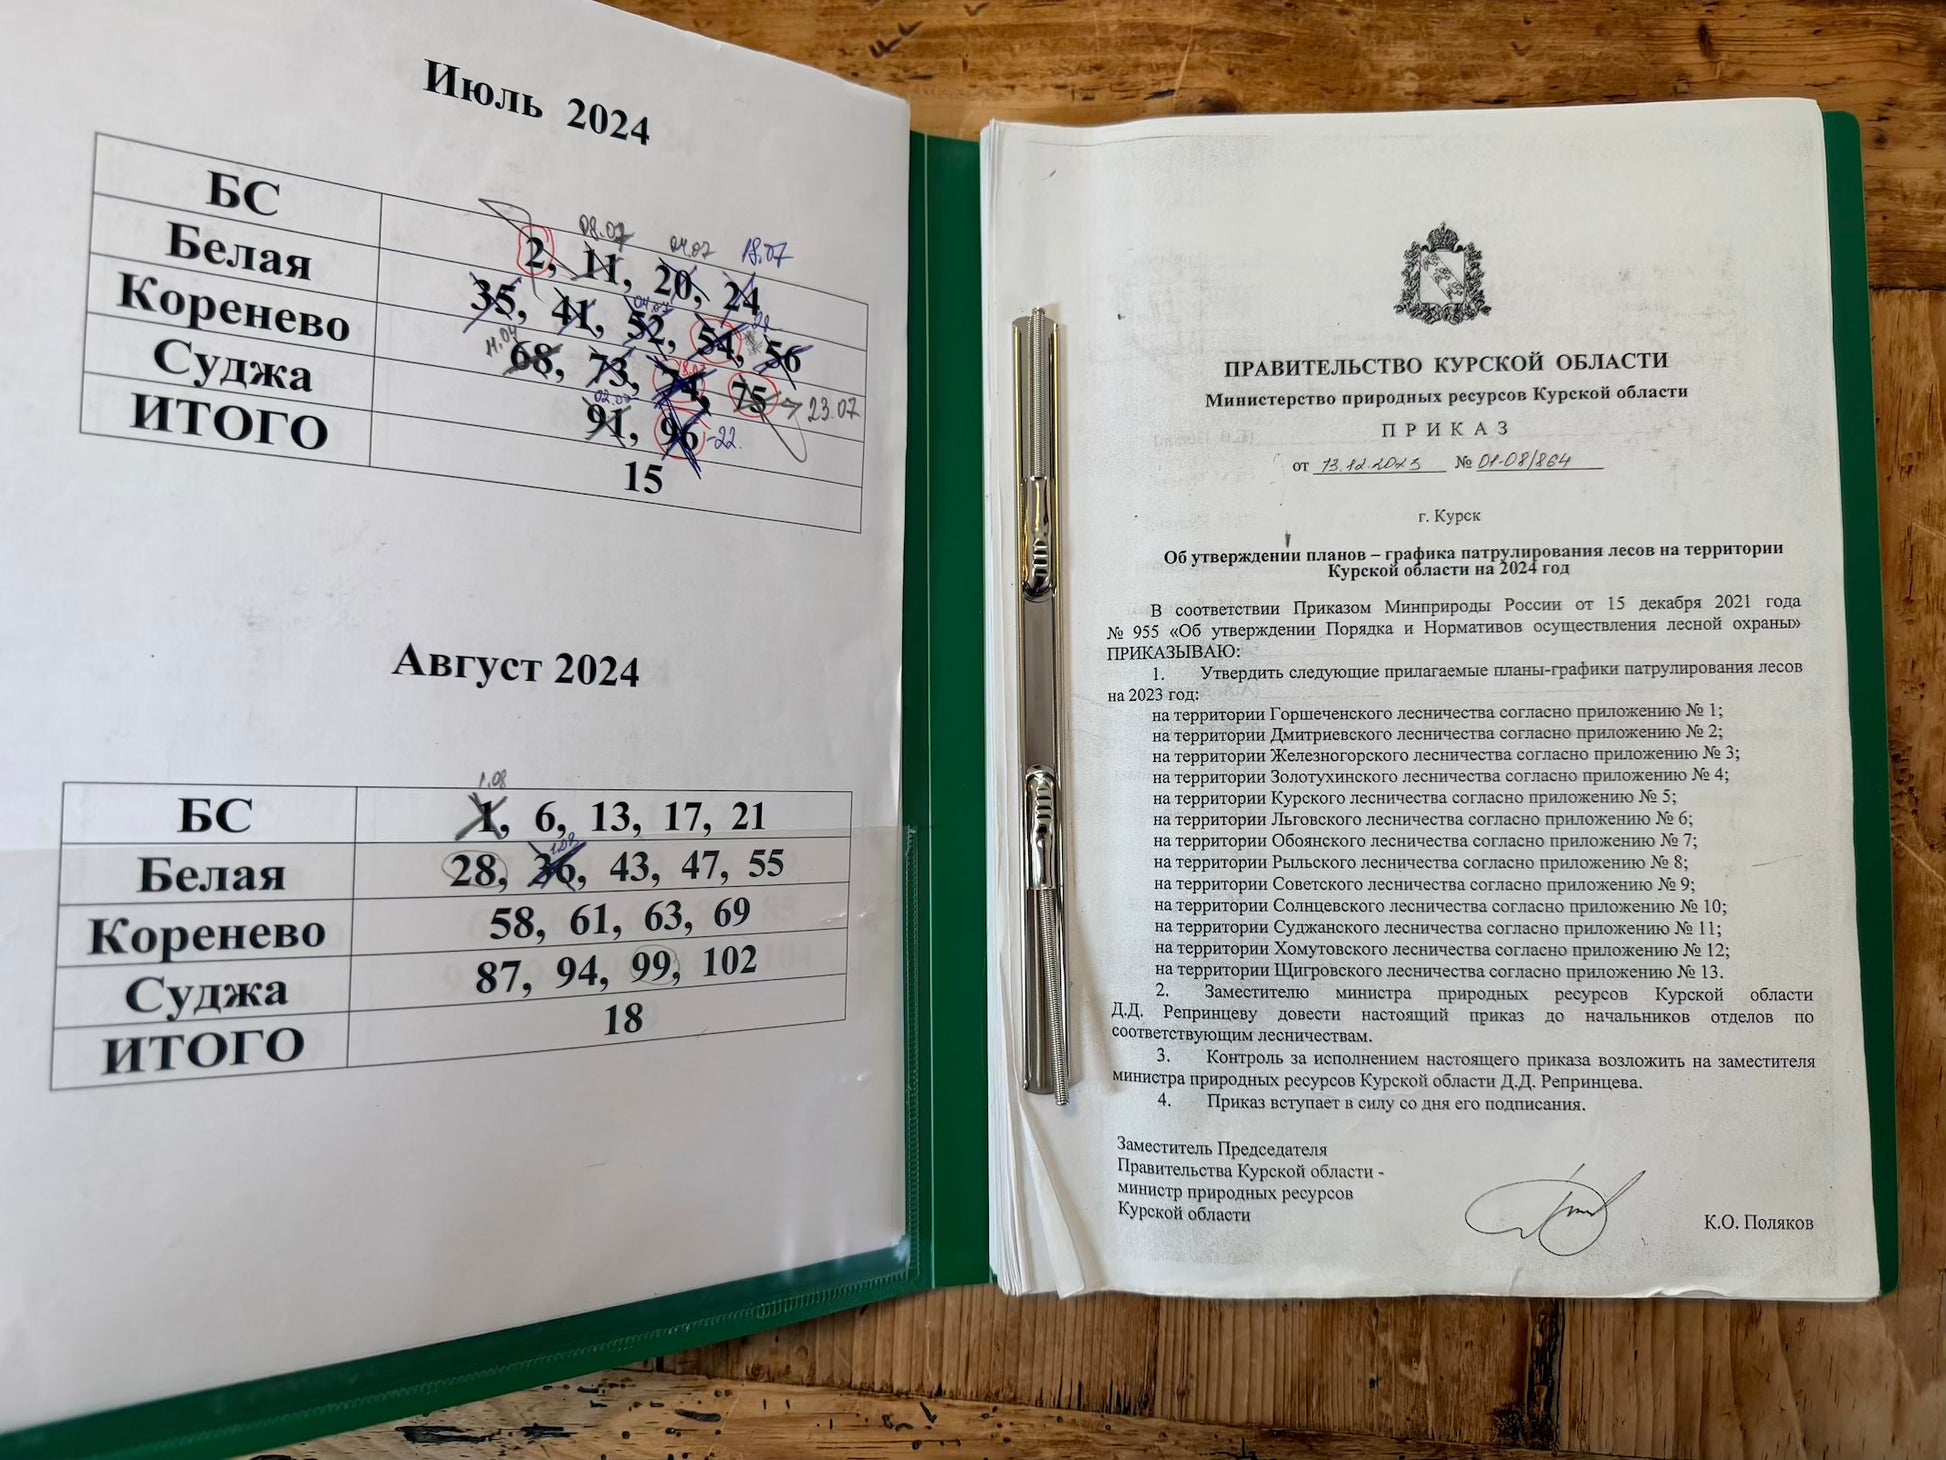 Июль 2024
БС
2, 11, 20, 24
08.07
04.07
18.07
Белая
35, 41, 52, 54, 56
04.07
Коренево
68, 73, 74, 75
23.07
Суджа
91, 96
-22.
ИТОГО
15
Август 2024
1.08
БС
1, 6, 13, 17, 21
Белая
28, 36, 43, 47, 55
Коренево
58, 61, 63, 69
Суджа
87, 94, 99, 102
ИТОГО
18
ПРАВИТЕЛЬСТВО КУРСКОЙ ОБЛАСТИ
Министерство природных ресурсов Курской области
П Р И К А З
от 13.12.2023 № 01-08/864
г. Курск
Об утверждении планов – графика патрулирования лесов на территории
Курской области на 2024 год
В соответствии Приказом Минприроды России от 15 декабря 2021 года
№ 955 «Об утверждении Порядка и Нормативов осуществления лесной охраны»
ПРИКАЗЫВАЮ:
1. Утвердить следующие прилагаемые планы-графики патрулирования лесов
на 2023 год:
на территории Горшеченского лесничества согласно приложению № 1;
на территории Дмитриевского лесничества согласно приложению № 2;
на территории Железногорского лесничества согласно приложению № 3;
на территории Золотухинского лесничества согласно приложению № 4;
на территории Курского лесничества согласно приложению № 5;
на территории Льговского лесничества согласно приложению № 6;
на территории Обоянского лесничества согласно приложению № 7;
на территории Рыльского лесничества согласно приложению № 8;
на территории Советского лесничества согласно приложению № 9;
на территории Солнцевского лесничества согласно приложению № 10;
на территории Суджанского лесничества согласно приложению № 11;
на территории Хомутовского лесничества согласно приложению № 12;
на территории Щигровского лесничества согласно приложению № 13.
2. Заместителю министра природных ресурсов Курской области
Д.Д. Репринцеву довести настоящий приказ до начальников отделов по
соответствующим лесничествам.
3. Контроль за исполнением настоящего приказа возложить на заместителя
министра природных ресурсов Курской области Д.Д. Репринцева.
4. Приказ вступает в силу со дня его подписания.
Заместитель Председателя
Правительства Курской области -
министр природных ресурсов
Курской области
К.О. Поляков